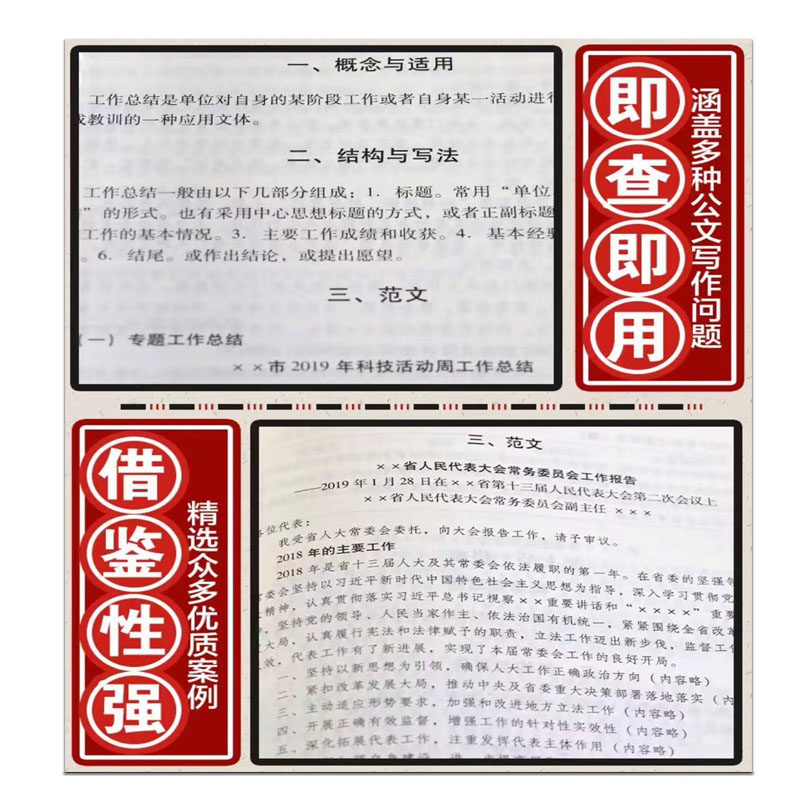 一、概念与适用
工作总结是单位对自身的某阶段工作或者自身某一活动进行
教训的一种应用文体。
二、结构与写法
工作总结一般由以下几部分组成：1. 标题。常用“单位
”的形式。也有采用中心思想标题的方式，或者正副标题
工作的基本情况。3. 主要工作成绩和收获。4. 基本经验
。6. 结尾。或作出结论，或提出愿望。
三、范文
（一）专题工作总结
××市 2019 年科技活动周工作总结
即查即用
涵盖多种公文写作问题
借鉴性强
精选众多优质案例
三、范文
××省人民代表大会常务委员会工作报告
——2019 年 1 月 28 日在××省第十三届人民代表大会第二次会议上
××省人民代表大会常务委员会副主任 ×××
各位代表：
我受省人大常委会委托，向大会报告工作，请予审议。
2018 年的主要工作
2018 年是省十三届人大及其常委会依法履职的第一年。在省委的坚强领
委会坚持以习近平新时代中国特色社会主义思想为指导，深入学习贯彻党
精神，认真贯彻落实习近平总书记视察××重要讲话和“××××”重要
，坚持党的领导、人民当家作主、依法治国有机统一，紧紧围绕全省改革
大局，认真履行宪法和法律赋予的职责，立法工作迈出新步伐，监督工作
效，代表工作有了新进展，实现了本届常委会工作的良好开局。
一、坚持以新思想为引领，确保人大工作正确政治方向（内容略）
二、紧扣改革发展大局，推动中央及省委重大决策部署落地落实（内
三、主动适应形势要求，加强和改进地方立法工作（内容略）
四、开展正确有效监督，增强工作的针对性实效性（内容略）
五、深化拓展代表工作，注重发挥代表主体作用（内容略）